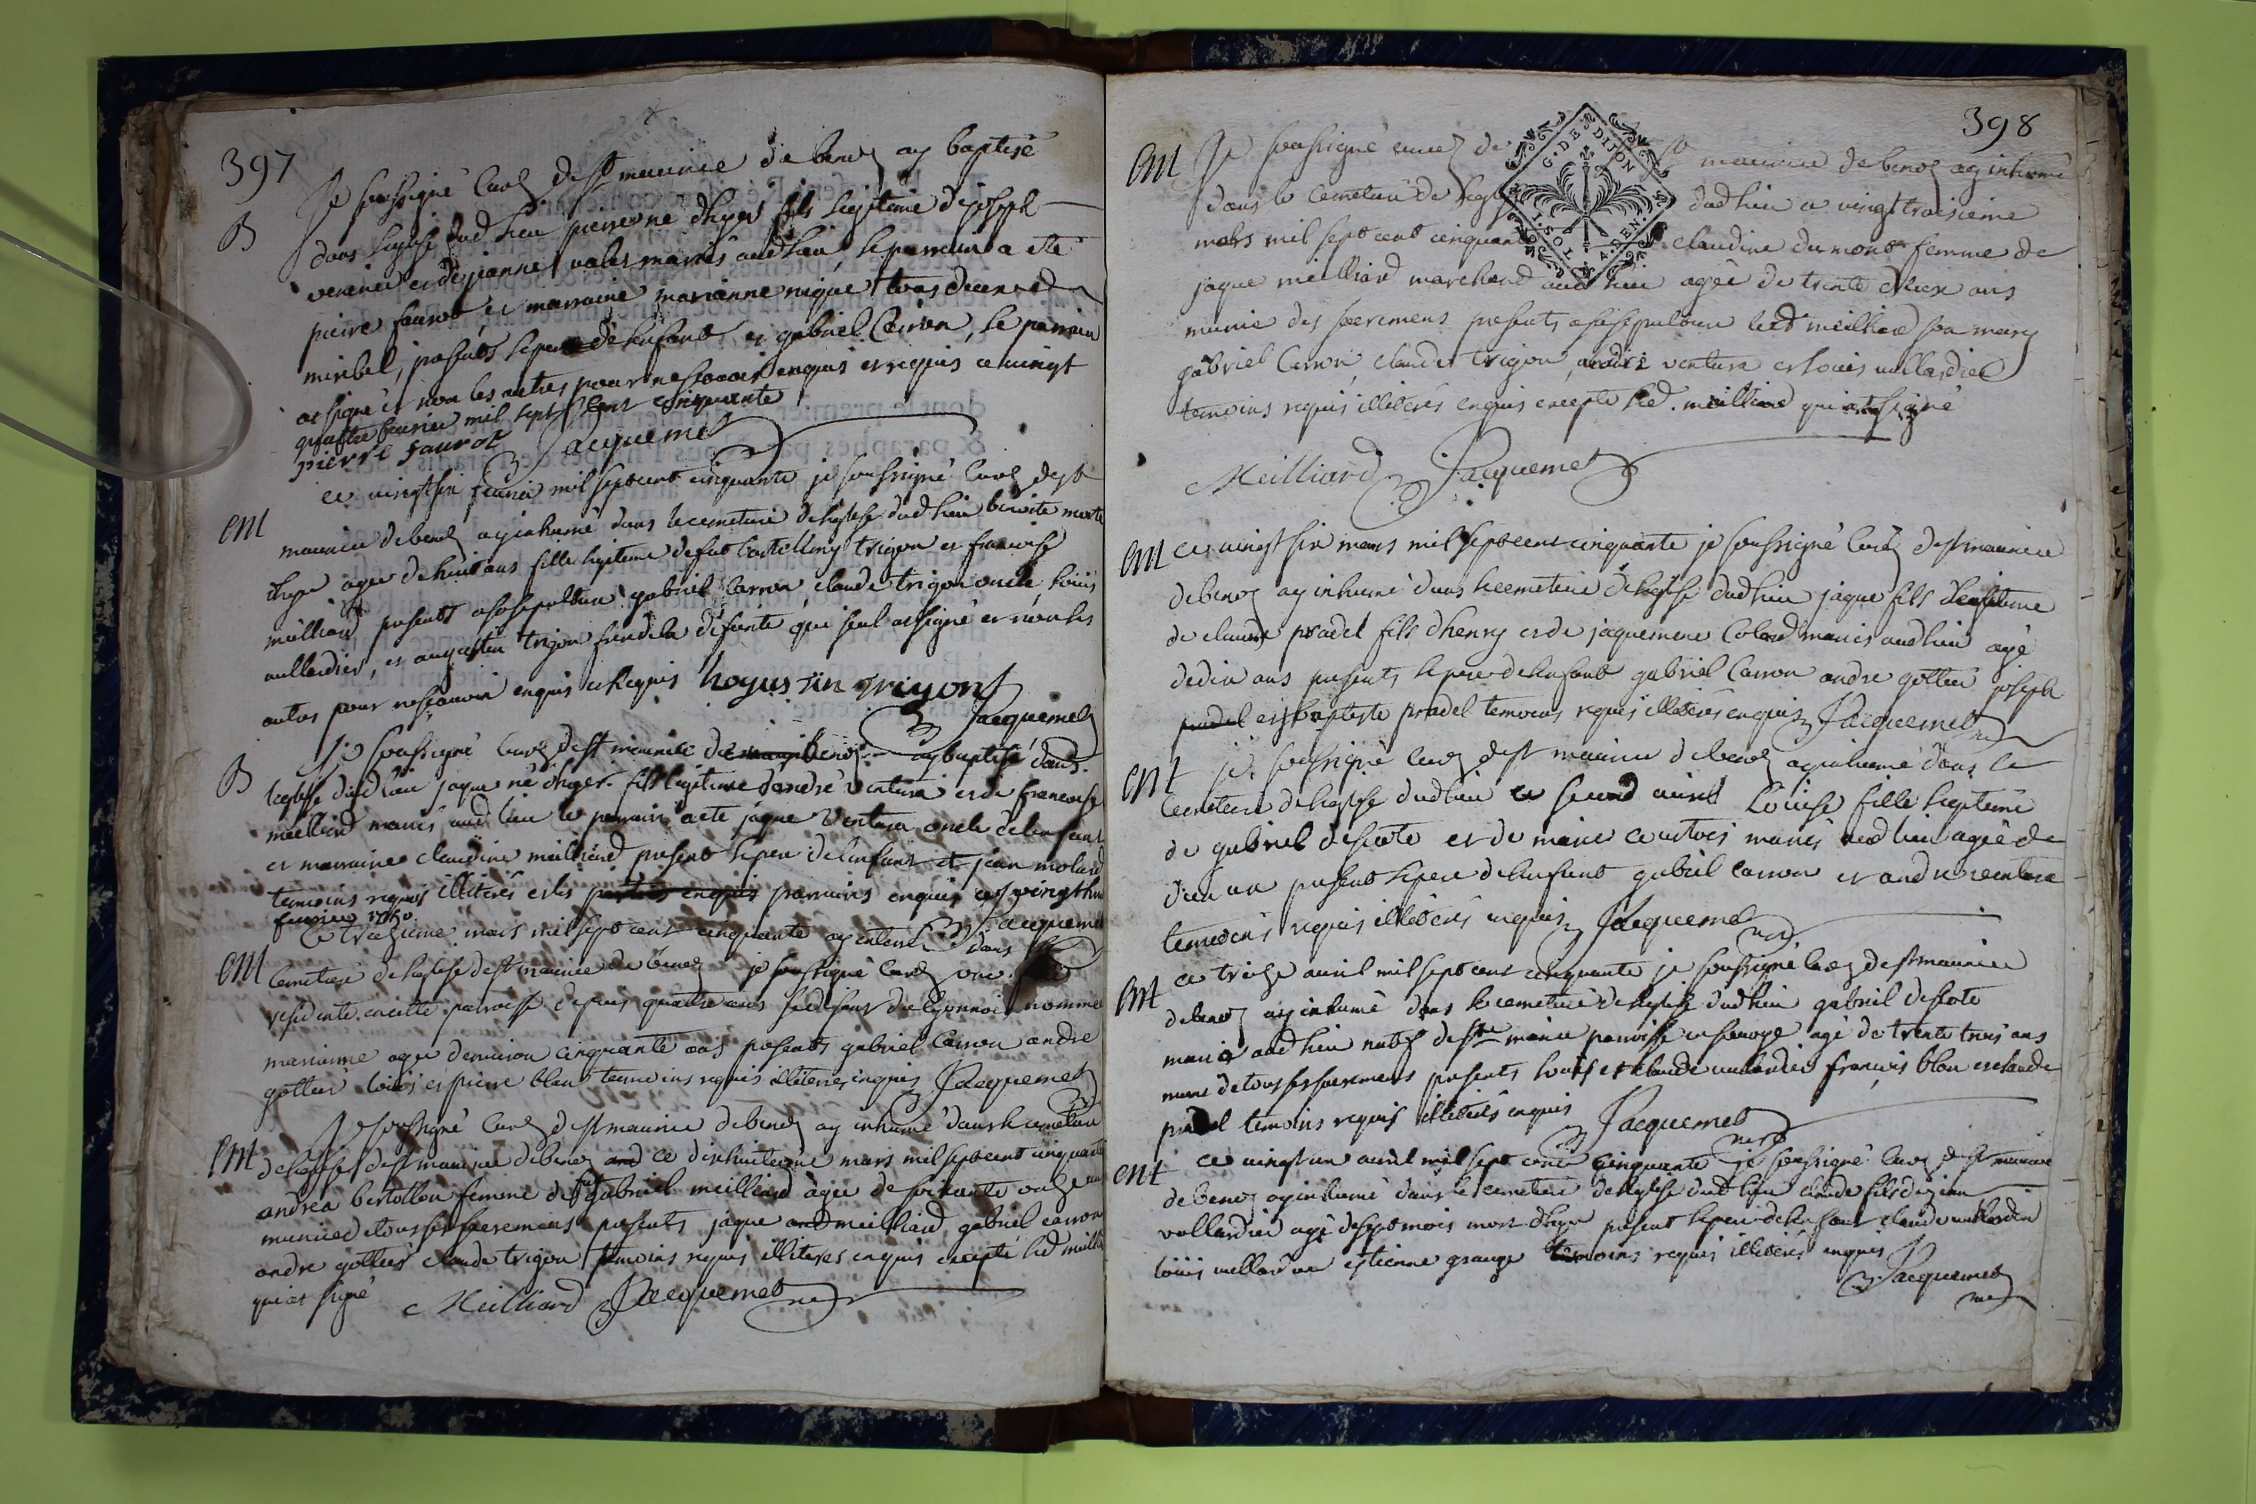 397
B
Je soussigné curé de st maurice de benoz ay baptisé
dans l'eglise dud lieu pierre né d'hyer fils legitime de joseph
et de jeanne mariés aud lieu le parrain a eté
pierre faurot et marraine marianne tous deux de
miribel, presents le pere de l'enfant et gabriel Carron, le parrain
at signé et non les autres pour ne scavoir enquis et requis ce vingt
quattre fevrier mil sept cent cinquante
pierre faurot Jacquemet
ent
ce vingt six fevrier mil sept cent cinquante je soussigné curé de st
maurice de benoz ay inhumé dans le cemetiere de l'eglise dud lieu benoite morte
d'hyer agee de huit ans fille legitime de fut bartelemy trigon et francoise
meilliard presents a sa sepulture gabriel carron claude trigon oncle, louis
vullardier, et augustin trigon frere de la defunte qui seul at signé et non les
autres pour ne scavoir enquis et requis trigont
Jacquemet
B
Je soussigné curé de st maurice de benoz ay baptisé dans
l'eglise dud lieu jaque né d'hyer fils legitime d'andré ventura et de francoise
meilliard mariés aud lieu le parrain a eté jaque ventura oncle de l'enfant
et marraine claudine meilliard present le pere de l'enfant et jean molard
temoins requis illiterés et les parrains enquis ce vingt huit
fevrier 1750. Jacquemet
ent
Ce treizieme mars mil sept cent cinquante ay enterré dans
cemetiere de l'eglise de st maurice de benoz je soussigné curé une
residente en cette paroisse depuis quattre ans se disant du lyonnois nommée
marianne agee d'environ cinquante ans presents gabriel Carron andre
gottier louis et pierre blanc temoins requis illiteres enquis Jacquemet
ent
Je soussigné curé de st maurice de benoz ay inhumé dans le cemetiere
de l'eglise de st maurice de benoz ce dixhuitieme mars mil sept cent cinquante
andrea bertollon femme de gabriel meilliard agee de soixante onze ans
munie de tous ses sacremens presents jaque meilliard gabriel carron
andre gottier claude trigon temoins requis illiteres enquis excepté led meilliard
qui at signé Meilliard Jacquemet
398
ent
Je soussigné curé de st maurice de benoz ay inhumé
dans le cemetiere de l'eglise dud lieu ce vingt troisieme
mars mil sept cent cinquante claudine dumont femme de
jaque meilliard marchand aud lieu agée de trente deux ans
munie des sacremens presents a sa sepulture led meilliard son mary
gabriel Carron claude trigon, andré ventura et louis vullardier
temoins requis illiterés enquis excepté led. meilliard qui at signé
G. DE DIJON
1. SOL 4. DEN.
Meilliard Jacquemet
ent
ce vingt six mars mil sept cent cinquante je soussigné curé de st maurice
de benoz ay inhumé dans le cemetiere de l'eglise dud lieu jaque fils legitime
de claude pradel fils d'henry et de jaquemine mariés aud lieu agé
de dix ans presents le pere de l'enfant gabriel Carron andre gottier joseph
pradel et baptiste pradel temoins requis illiterés enquis Jacquemet
ent
je soussigné curé de st maurice de benoz ay inhumé dans le
cemetiere de l'eglise dud lieu ce second avril Louise fille legitime
de gabriel descote et de marie courtois mariés aud lieu agée de
d'un an present le pere de l'enfant gabriel carron et andre ventura
temoins requis illiterés enquis Jacquemet
ent
ce treize avril mil sept cent cinquante je soussigné curé de st maurice
de benoz ay inhumé dans le cemetiere de l'eglise dud lieu gabriel descote
marié aud lieu natif de ste marie paroisse en savoye agé de trente trois ans
muni de tous ses sacremens presents louis et claude vullardier francois blan et claude
pradel temoins requis illiterés enquis Jacquemet
ent
ce vingt un avril mil sept cent cinquante je soussigné curé de st maurice
de benoz ay inhumé dans le cemetiere de l'eglise dud lieu claude fils de jean
vullardier agé de sept mois mort d'hyer present le pere de l'enfant claude vullardier
louis vullardier estienne grange temoins requis illiterés enquis
Jacquemet